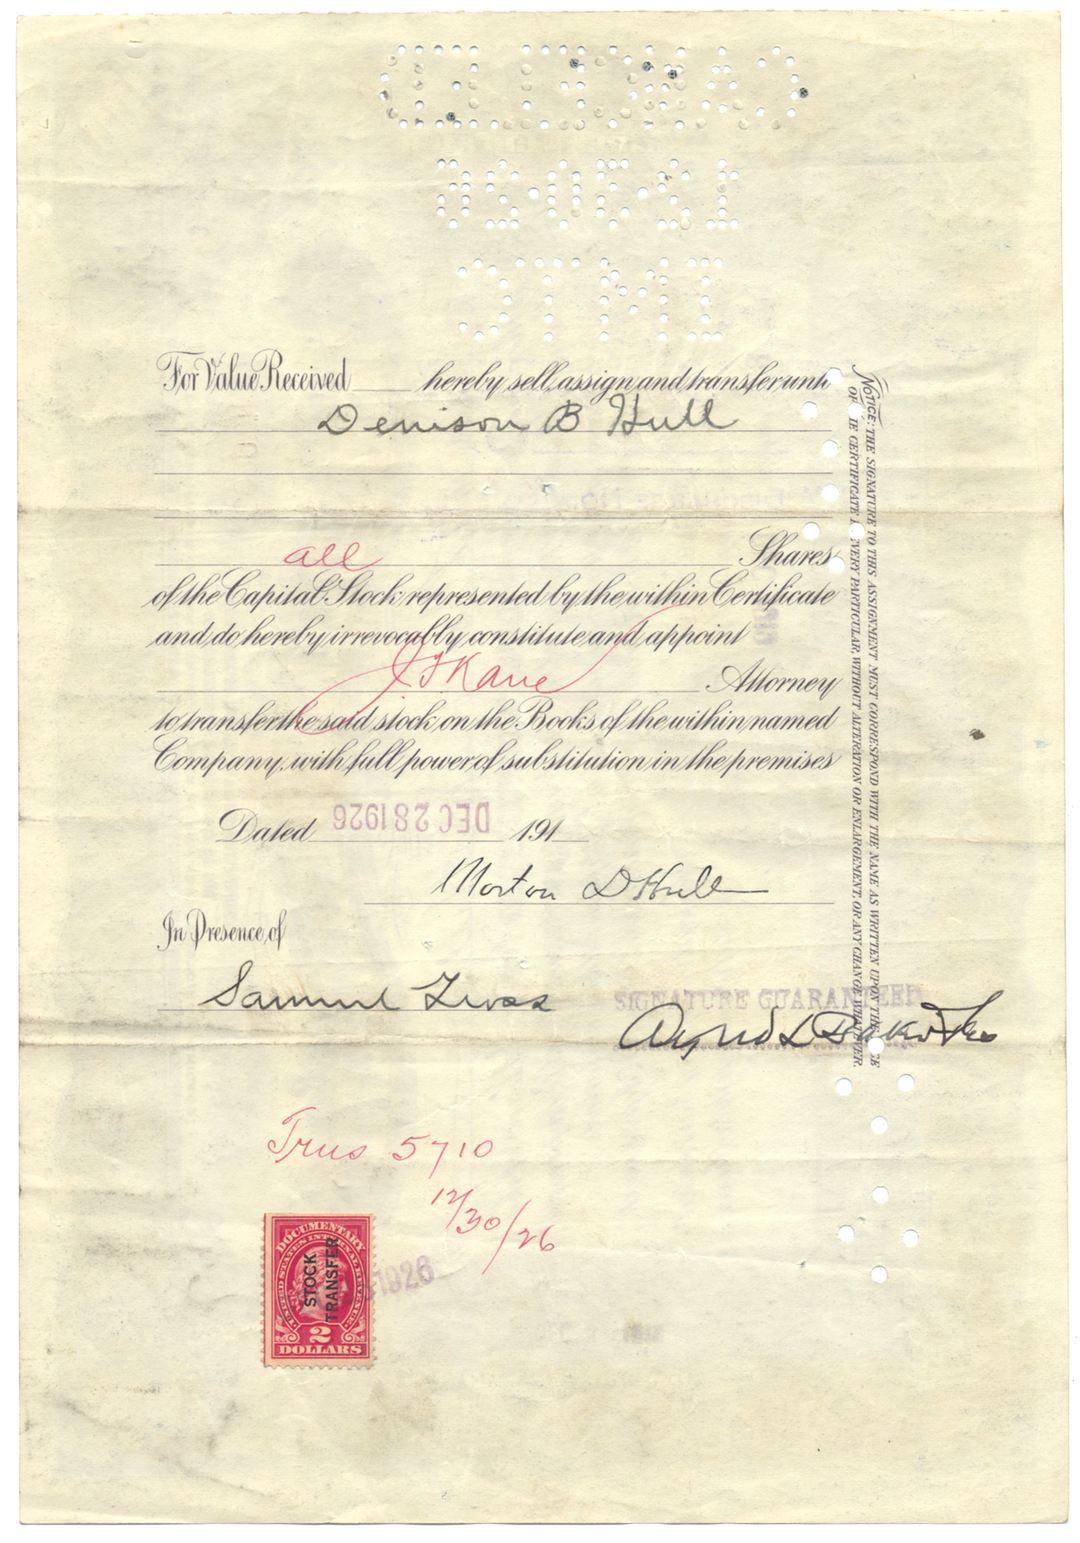 CANCELLED
12·30·26
IMTC
For Value Received hereby sell, assign and transfer unto
Denison B Hull
all Shares
of the Capital Stock represented by the within Certificate
and do hereby irrevocably constitute and appoint
J F Kane Attorney
to transfer the said stock on the Books of the within named
Company, with full power of substitution in the premises
Dated DEC 28 1926 191
Morton D Hull
In Presence of
Samuel
SIGNATURE GUARANTEED
Alfred L Baker & Co
NOTICE: THE SIGNATURE TO THIS ASSIGNMENT MUST CORRESPOND WITH THE NAME AS WRITTEN UPON THE
OF THE CERTIFICATE IN EVERY PARTICULAR, WITHOUT ALTERATION OR ENLARGEMENT, OR ANY CHANGE WHATEVER.
5710
12/30/26
DOCUMENTARY
UNITED STATES INTERNAL REVENUE
STOCK
TRANSFER
1926
2
DOLLARS